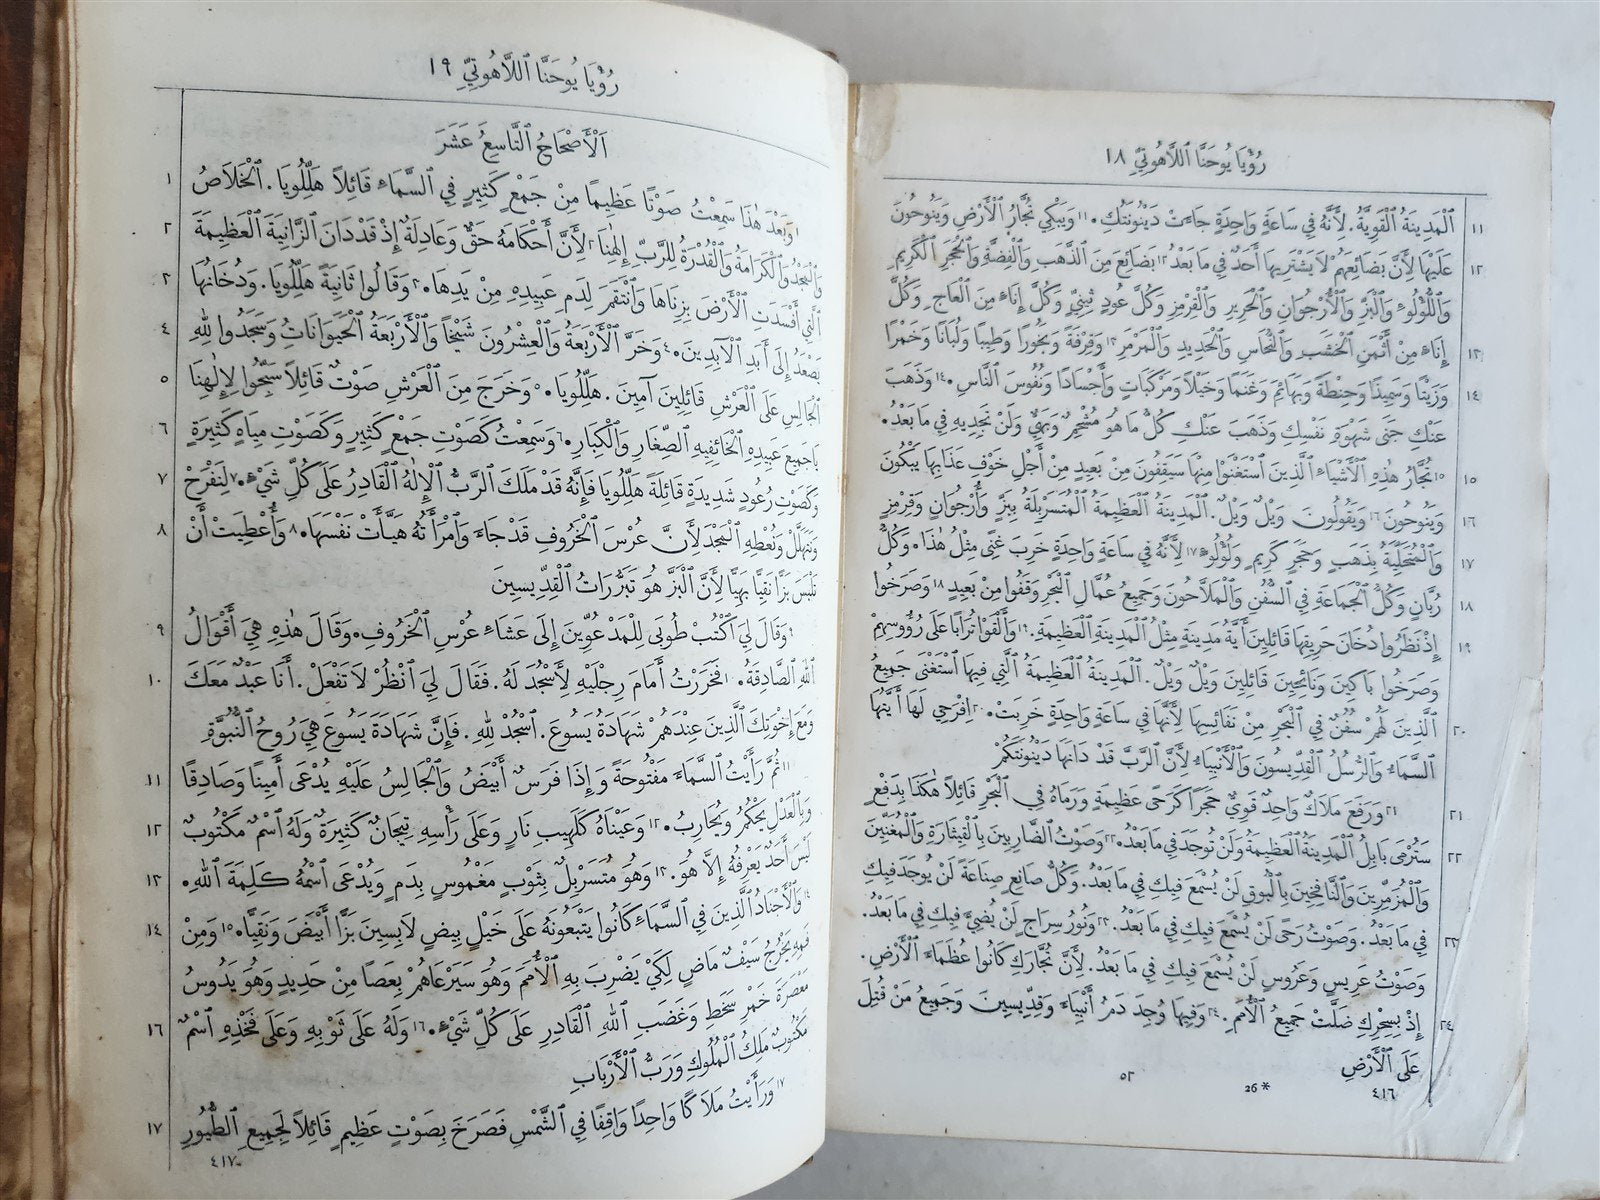 رُؤْيَا يُوحَنَّا ٱللَّاهُوتِيِّ ١٨
١١ ٱلْمَدِينَةُ ٱلْقَوِيَّةُ. لِأَنَّهُ فِي سَاعَةٍ وَاحِدَةٍ جَاءَتْ دَيْنُونَتُكِ. ١١وَيَبْكِي تُجَّارُ ٱلْأَرْضِ وَيَنُوحُونَ
١٢ عَلَيْهَا لِأَنَّ بَضَائِعَهُمْ لَا يَشْتَرِيهَا أَحَدٌ فِي مَا بَعْدُ ١٢بَضَائِعَ مِنَ ٱلذَّهَبِ وَٱلْفِضَّةِ وَٱلْحَجَرِ ٱلْكَرِيمِ
وَٱللُّؤْلُوءِ وَٱلْبَزِّ وَٱلْأُرْجُوانِ وَٱلْحَرِيرِ وَٱلْقِرْمِزِ وَكُلَّ عُودٍ ثِينِيٍّ وَكُلَّ إِنَاءٍ مِنَ ٱلْعَاجِ وَكُلَّ
١٣ إِنَاءٍ مِنْ أَثْمَنِ ٱلْخَشَبِ وَٱلنُّحَاسِ وَٱلْحَدِيدِ وَٱلْمَرْمَرِ ١٣وَقِرْفَةً وَبَخُورًا وَطِيبًا وَلُبَانًا وَخَمْرًا
١٤ وَزَيْتًا وَسَمِيذًا وَحِنْطَةً وَبَهَائِمَ وَغَنَمًا وَخَيْلًا وَمَرْكَبَاتٍ وَأَجْسَادًا وَنُفُوسَ ٱلنَّاسِ. ١٤وَذَهَبَ
عَنْكِ جَنَى شَهْوَةِ نَفْسِكِ وَذَهَبَ عَنْكِ كُلُّ مَا هُوَ مُشْحِمٌ وَبَهِيٌّ وَلَنْ تَجِدِيهِ فِي مَا بَعْدُ.
١٥ ١٥تُجَّارُ هٰذِهِ ٱلْأَشْيَاءِ ٱلَّذِينَ ٱسْتَغْنَوْا مِنْهَا سَيَقِفُونَ مِنْ بَعِيدٍ مِنْ أَجْلِ خَوْفِ عَذَابِهَا يَبْكُونَ
١٦ وَيَنُوحُونَ ١٦وَيَقُولُونَ وَيْلٌ وَيْلٌ. ٱلْمَدِينَةُ ٱلْعَظِيمَةُ ٱلْمُتَسَرْبِلَةُ بِبَزٍّ وَأُرْجُوانٍ وَقِرْمِزٍ
١٧ وَٱلْمُتَحَلِّيَةُ بِذَهَبٍ وَحَجَرٍ كَرِيمٍ وَلُؤْلُوءٍ ١٧لِأَنَّهُ فِي سَاعَةٍ وَاحِدَةٍ خَرِبَ غِنًى مِثْلُ هٰذَا. وَكُلُّ
١٨ رُبَّانٍ وَكُلُّ ٱلْجَمَاعَةِ فِي ٱلسُّفُنِ وَٱلْمَلَّاحُونَ وَجَمِيعُ عُمَّالِ ٱلْبَحْرِ وَقَفُوا مِنْ بَعِيدٍ ١٨وَصَرَخُوا
١٩ إِذْ نَظَرُوا دُخَانَ حَرِيقِهَا قَائِلِينَ أَيَّةُ مَدِينَةٍ مِثْلُ ٱلْمَدِينَةِ ٱلْعَظِيمَةِ. ١٩وَأَلْقَوْا تُرَابًا عَلَى رُؤُوسِهِمْ
وَصَرَخُوا بَاكِينَ وَنَائِحِينَ قَائِلِينَ وَيْلٌ وَيْلٌ. ٱلْمَدِينَةُ ٱلْعَظِيمَةُ ٱلَّتِي فِيهَا ٱسْتَغْنَى جَمِيعُ
٢٠ ٱلَّذِينَ لَهُمْ سُفُنٌ فِي ٱلْبَحْرِ مِنْ نَفَائِسِهَا لِأَنَّهَا فِي سَاعَةٍ وَاحِدَةٍ خَرِبَتْ. ٢٠اِفْرَحِي لَهَا أَيَّتُهَا
ٱلسَّمَاءُ وَٱلرُّسُلُ ٱلْقِدِّيسُونَ وَٱلْأَنْبِيَاءُ لِأَنَّ ٱلرَّبَّ قَدْ دَانَهَا دَيْنُونَتَكُمْ
٢١ ٢١وَرَفَعَ مَلَاكٌ وَاحِدٌ قَوِيٌّ حَجَرًا كَرَحًى عَظِيمَةٍ وَرَمَاهُ فِي ٱلْبَحْرِ قَائِلًا هٰكَذَا بِدَفْعٍ
٢٢ سَتُرْمَى بَابِلُ ٱلْمَدِينَةُ ٱلْعَظِيمَةُ وَلَنْ تُوجَدَ فِي مَا بَعْدُ. ٢٢وَصَوْتُ ٱلضَّارِبِينَ بِٱلْقِيثَارَةِ وَٱلْمُغَنِّينَ
وَٱلْمُزَمِّرِينَ وَٱلنَّافِخِينَ بِٱلْبُوقِ لَنْ يُسْمَعَ فِيكِ فِي مَا بَعْدُ. وَكُلُّ صَانِعٍ صِنَاعَةً لَنْ يُوجَدَ فِيكِ
٢٣ فِي مَا بَعْدُ. وَصَوْتُ رَحًى لَنْ يُسْمَعَ فِيكِ فِي مَا بَعْدُ. ٢٣وَنُورُ سِرَاجٍ لَنْ يُضِيَّ فِيكِ فِي مَا بَعْدُ.
وَصَوْتُ عَرِيسٍ وَعَرُوسٍ لَنْ يُسْمَعَ فِيكِ فِي مَا بَعْدُ. لِأَنَّ تُجَّارَكِ كَانُوا عُظَمَاءَ ٱلْأَرْضِ.
٢٤ إِذْ بِسِحْرِكِ ضَلَّتْ جَمِيعُ ٱلْأُمَمِ. ٢٤وَفِيهَا وُجِدَ دَمُ أَنْبِيَاءَ وَقِدِّيسِينَ وَجَمِيعِ مَنْ قُتِلَ
عَلَى ٱلْأَرْضِ
٤١٦ 26* ٥٢
رُؤْيَا يُوحَنَّا ٱللَّاهُوتِيِّ ١٩
اَلْأَصْحَاحُ ٱلتَّاسِعُ عَشَرَ
١وَبَعْدَ هٰذَا سَمِعْتُ صَوْتًا عَظِيمًا مِنْ جَمْعٍ كَثِيرٍ فِي ٱلسَّمَاءِ قَائِلًا هَلِّلُويَا. ٱلْخَلَاصُ ١
وَٱلْمَجْدُ وَٱلْكَرَامَةُ وَٱلْقُدْرَةُ لِلرَّبِّ إِلٰهِنَا ٢لِأَنَّ أَحْكَامَهُ حَقٌّ وَعَادِلَةٌ إِذْ قَدْ دَانَ ٱلزَّانِيَةَ ٱلْعَظِيمَةَ ٢
ٱلَّتِي أَفْسَدَتِ ٱلْأَرْضَ بِزِنَاهَا وَٱنْتَقَمَ لِدَمِ عَبِيدِهِ مِنْ يَدِهَا. ٣وَقَالُوا ثَانِيَةً هَلِّلُويَا. وَدُخَانُهَا ٣
يَصْعَدُ إِلَى أَبَدِ ٱلْآبِدِينَ. ٤وَخَرَّ ٱلْأَرْبَعَةُ وَٱلْعِشْرُونَ شَيْخًا وَٱلْأَرْبَعَةُ ٱلْحَيَوَانَاتُ وَسَجَدُوا لِلهِ ٤
ٱلْجَالِسِ عَلَى ٱلْعَرْشِ قَائِلِينَ آمِينَ. هَلِّلُويَا. ٥وَخَرَجَ مِنَ ٱلْعَرْشِ صَوْتٌ قَائِلًا سَبِّحُوا لِإِلٰهِنَا ٥
يَا جَمِيعَ عَبِيدِهِ ٱلْخَائِفِيهِ ٱلصِّغَارِ وَٱلْكِبَارِ. ٦وَسَمِعْتُ كَصَوْتِ جَمْعٍ كَثِيرٍ وَكَصَوْتِ مِيَاهٍ كَثِيرَةٍ ٦
وَكَصَوْتِ رُعُودٍ شَدِيدَةٍ قَائِلَةً هَلِّلُويَا فَإِنَّهُ قَدْ مَلَكَ ٱلرَّبُّ ٱلْإِلٰهُ ٱلْقَادِرُ عَلَى كُلِّ شَيْءٍ. ٧لِنَفْرَحْ ٧
وَنَتَهَلَّلْ وَنُعْطِهِ ٱلْمَجْدَ لِأَنَّ عُرْسَ ٱلْخَرُوفِ قَدْ جَاءَ وَٱمْرَأَتُهُ هَيَّأَتْ نَفْسَهَا. ٨وَأُعْطِيَتْ أَنْ ٨
تَلْبَسَ بَزًّا نَقِيًّا بَهِيًّا لِأَنَّ ٱلْبَزَّ هُوَ تَبَرُّرَاتُ ٱلْقِدِّيسِينَ
٩وَقَالَ لِيَ ٱكْتُبْ طُوبَى لِلْمَدْعُوِّينَ إِلَى عَشَاءِ عُرْسِ ٱلْخَرُوفِ. وَقَالَ هٰذِهِ هِيَ أَقْوَالُ ٩
ٱللهِ ٱلصَّادِقَةُ. ١٠فَخَرَرْتُ أَمَامَ رِجْلَيْهِ لِأَسْجُدَ لَهُ. فَقَالَ لِيَ ٱنْظُرْ لَا تَفْعَلْ. أَنَا عَبْدٌ مَعَكَ ١٠
وَمَعَ إِخْوَتِكَ ٱلَّذِينَ عِنْدَهُمْ شَهَادَةُ يَسُوعَ. ٱسْجُدْ لِلهِ. فَإِنَّ شَهَادَةَ يَسُوعَ هِيَ رُوحُ ٱلنُّبُوَّةِ
١١ثُمَّ رَأَيْتُ ٱلسَّمَاءَ مَفْتُوحَةً وَإِذَا فَرَسٌ أَبْيَضُ وَٱلْجَالِسُ عَلَيْهِ يُدْعَى أَمِينًا وَصَادِقًا ١١
وَبِٱلْعَدْلِ يَحْكُمُ وَيُحَارِبُ. ١٢وَعَيْنَاهُ كَلَهِيبِ نَارٍ وَعَلَى رَأْسِهِ تِيجَانٌ كَثِيرَةٌ وَلَهُ ٱسْمٌ مَكْتُوبٌ ١٢
لَيْسَ أَحَدٌ يَعْرِفُهُ إِلَّا هُوَ. ١٣وَهُوَ مُتَسَرْبِلٌ بِثَوْبٍ مَغْمُوسٍ بِدَمٍ وَيُدْعَى ٱسْمُهُ كَلِمَةَ ٱللهِ. ١٣
١٤وَٱلْأَجْنَادُ ٱلَّذِينَ فِي ٱلسَّمَاءِ كَانُوا يَتْبَعُونَهُ عَلَى خَيْلٍ بِيضٍ لَابِسِينَ بَزًّا أَبْيَضَ وَنَقِيًّا. ١٥وَمِنْ ١٤
فَمِهِ يَخْرُجُ سَيْفٌ مَاضٍ لِكَيْ يَضْرِبَ بِهِ ٱلْأُمَمَ وَهُوَ سَيَرْعَاهُمْ بِعَصًا مِنْ حَدِيدٍ وَهُوَ يَدُوسُ
مَعْصَرَةَ خَمْرِ سَخَطِ وَغَضَبِ ٱللهِ ٱلْقَادِرِ عَلَى كُلِّ شَيْءٍ. ١٦وَلَهُ عَلَى ثَوْبِهِ وَعَلَى فَخْذِهِ ٱسْمٌ ١٦
مَكْتُوبٌ مَلِكُ ٱلْمُلُوكِ وَرَبُّ ٱلْأَرْبَابِ
١٧وَرَأَيْتُ مَلَاكًا وَاحِدًا وَاقِفًا فِي ٱلشَّمْسِ فَصَرَخَ بِصَوْتٍ عَظِيمٍ قَائِلًا لِجَمِيعِ ٱلطُّيُورِ ١٧
٤١٧